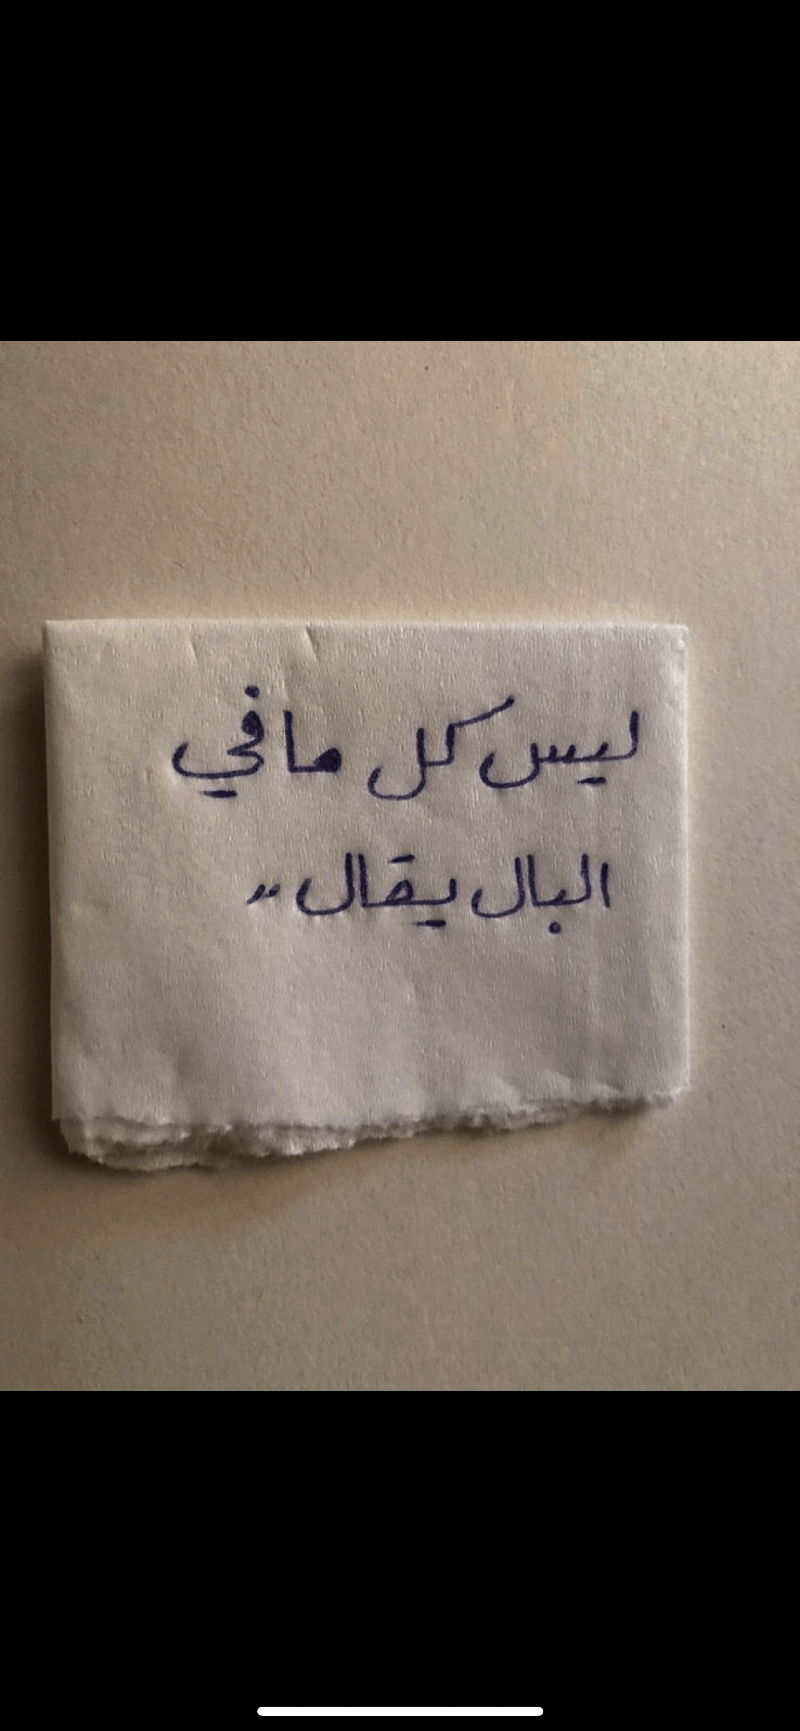 ليس كل ما في
البال يقال ,,